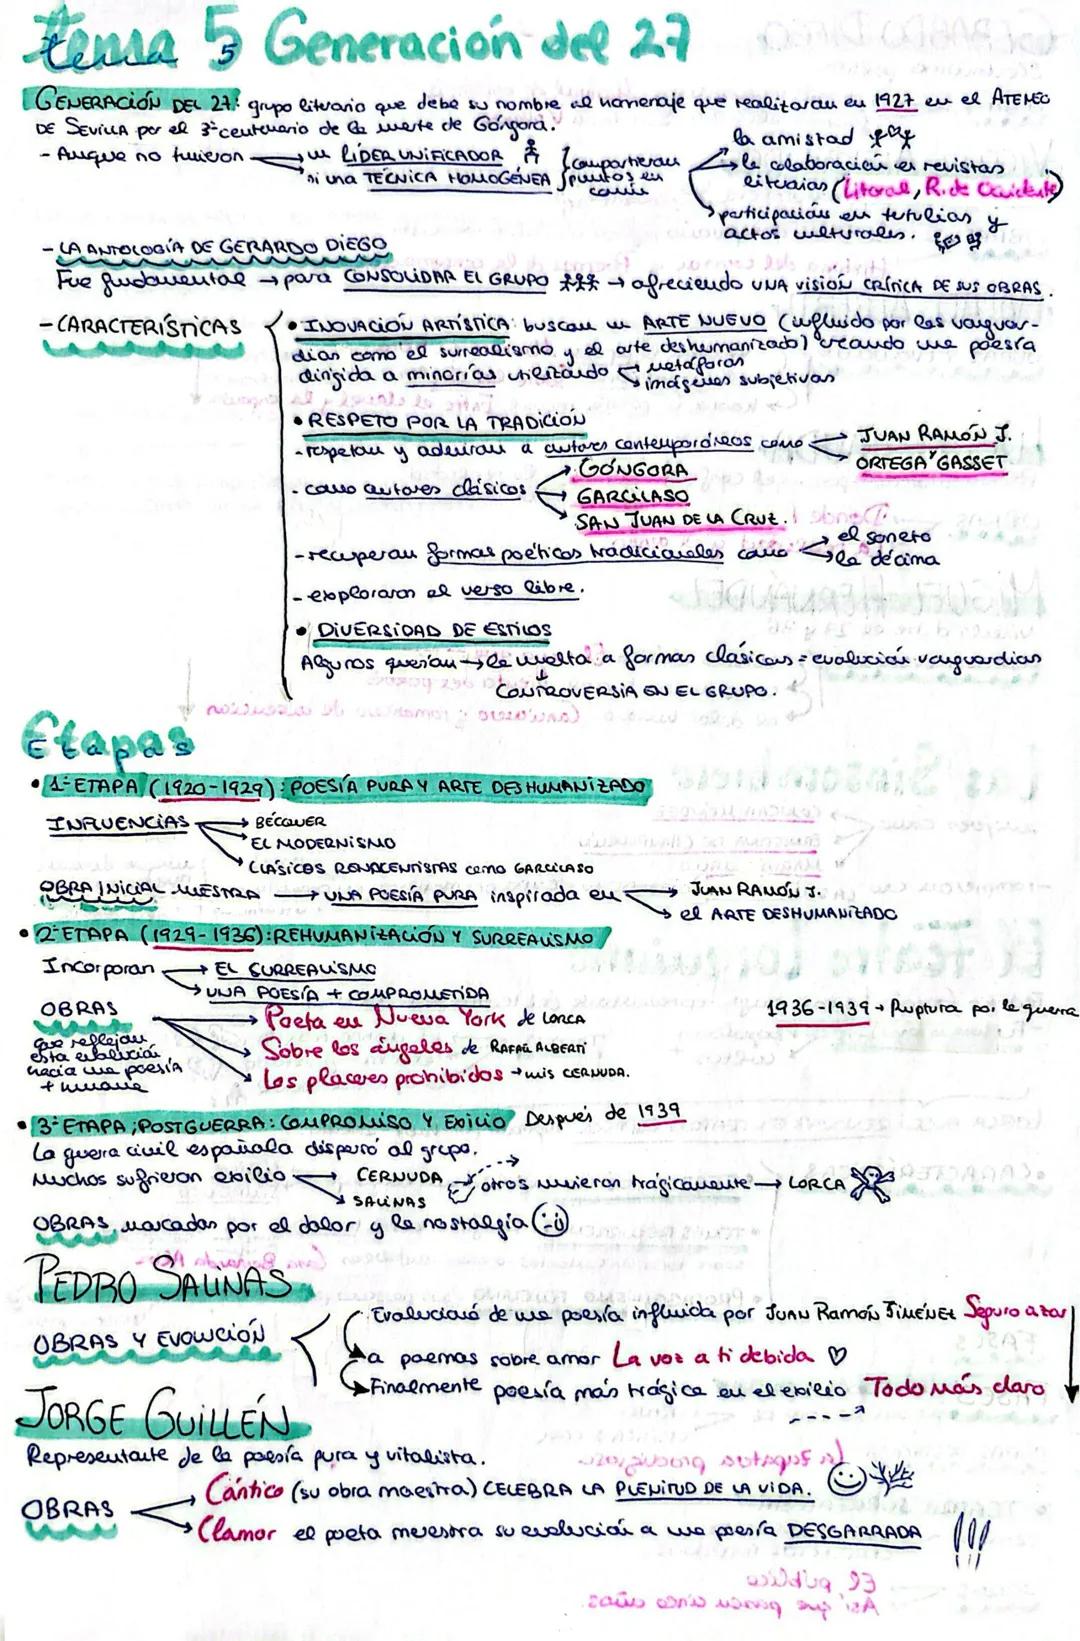 tema 5 Generación del 27
GENERACIÓN DEL 27: grupo literario que debe su nombre al homenaje que realizaron en 1927 en el ATENEO
DE SEVILLA por el 3º centenario de la muerte de Góngora.
- Aunque no tuvieron → un LÍDER UNIFICADOR
ni una TÉCNICA HOMOGÉNEA
compartieron puntos en común
la amistad
la colaboración en revistas
literarias (Litoral, R. de Occidente)
participación en tertulias y
actos culturales.
- LA ANTOLOGÍA DE GERARDO DIEGO
Fue fundamental → para CONSOLIDAR EL GRUPO → ofreciendo UNA VISIÓN CRÍTICA DE SUS OBRAS.
- CARACTERÍSTICAS
• INOVACIÓN ARTÍSTICA: buscan un ARTE NUEVO (influido por las vanguar-
dias como el surrealismo y el arte deshumanizado) creando una poesía
dirigida a minorías utilizando → metáforas
→ imágenes subjetivas
• RESPETO POR LA TRADICIÓN
- respetan y admiran a autores contemporáneos como → JUAN RAMÓN J.
ORTEGA Y GASSET
- como autores clásicos → GÓNGORA
→ GARCILASO
→ SAN JUAN DE LA CRUZ.
- recuperan formas poéticas tradicionales como → el soneto
→ la décima
- exploraron el verso libre.
• DIVERSIDAD DE ESTILOS
Algunos querían → la vuelta a formas clásicas = evolución vanguardias
↓
CONTROVERSIA EN EL GRUPO.
Etapas
• 1ª ETAPA (1920-1929): POESÍA PURA Y ARTE DESHUMANIZADO
INFLUENCIAS → BÉCQUER
→ EL MODERNISMO
→ CLÁSICOS RENACENTISTAS como GARCILASO
OBRA INICIAL MUESTRA → UNA POESÍA PURA inspirada en → JUAN RAMÓN J.
→ el ARTE DESHUMANIZADO
• 2ª ETAPA (1929-1936): REHUMANIZACIÓN Y SURREALISMO
Incorporan → EL SURREALISMO
→ UNA POESÍA + COMPROMETIDA
1936-1939 → Ruptura por la guerra
OBRAS
que reflejan
esta evolución
hacia una poesía
+ humana
→ Poeta en Nueva York de LORCA
→ Sobre los ángeles de RAFAEL ALBERTI
→ Los placeres prohibidos → LUIS CERNUDA.
• 3ª ETAPA; POSTGUERRA: COMPROMISO Y Exilio Después de 1939
La guerra civil española dispersó al grupo.
Muchos sufrieron exilio → CERNUDA
→ SALINAS
otros murieron trágicamente → LORCA
OBRAS marcadas por el dolor y la nostalgia
PEDRO SALINAS
OBRAS Y EVOLUCIÓN
Evolucionó de una poesía influida por JUAN RAMÓN JIMÉNEZ Seguro azar
→ a poemas sobre amor La voz a ti debida ♡
→ Finalmente poesía más trágica en el exilio Todo más claro
JORGE GUILLÉN
Representante de la poesía pura y vitalista.
OBRAS → Cántico (su obra maestra) CELEBRA LA PLENITUD DE LA VIDA.
→ Clamor el poeta muestra su evolución a una poesía DESGARRADA !!!